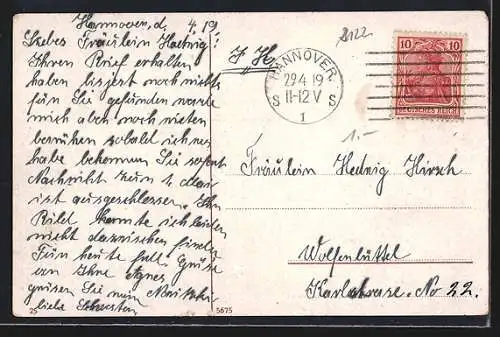 Hannover, d. 4.19.
Liebes Fräulein Hedwig!
Ihren Brief erhalten
haben bis jetzt noch nichts
für Sie gefunden werde
mich aber noch weiter
bemühen sobald ich was
habe bekommen Sie sofort
Nachricht zum 1. Mai
ist ausgeschlossen. Ihr
Bild konnte ich leider
nicht dazwischen finden
Für heute Grüße
an Ihre
grüßen Sie
liebe Schwester
25
5675
J. H.
8122
HANNOVER
29.4.19
11-12 V
S S
1
10 10
DEUTSCHES REICH
1.-
Fräulein Hedwig Hirsch
Wolfenbüttel
Karlstrasse. No 22.